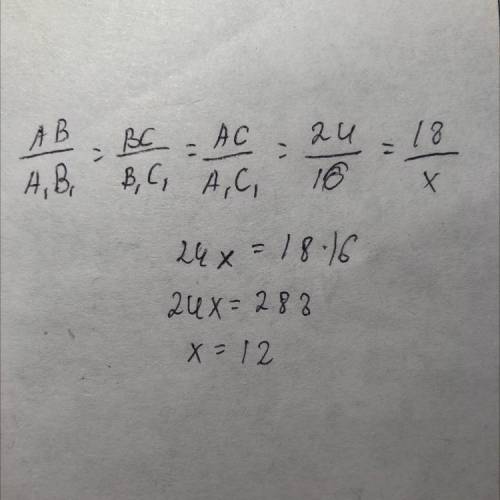 AB/A₁B₁ = BC/B₁C₁ = AC/A₁C₁ = 24/16 = 18/x
24x = 18·16
24x = 288
x = 12